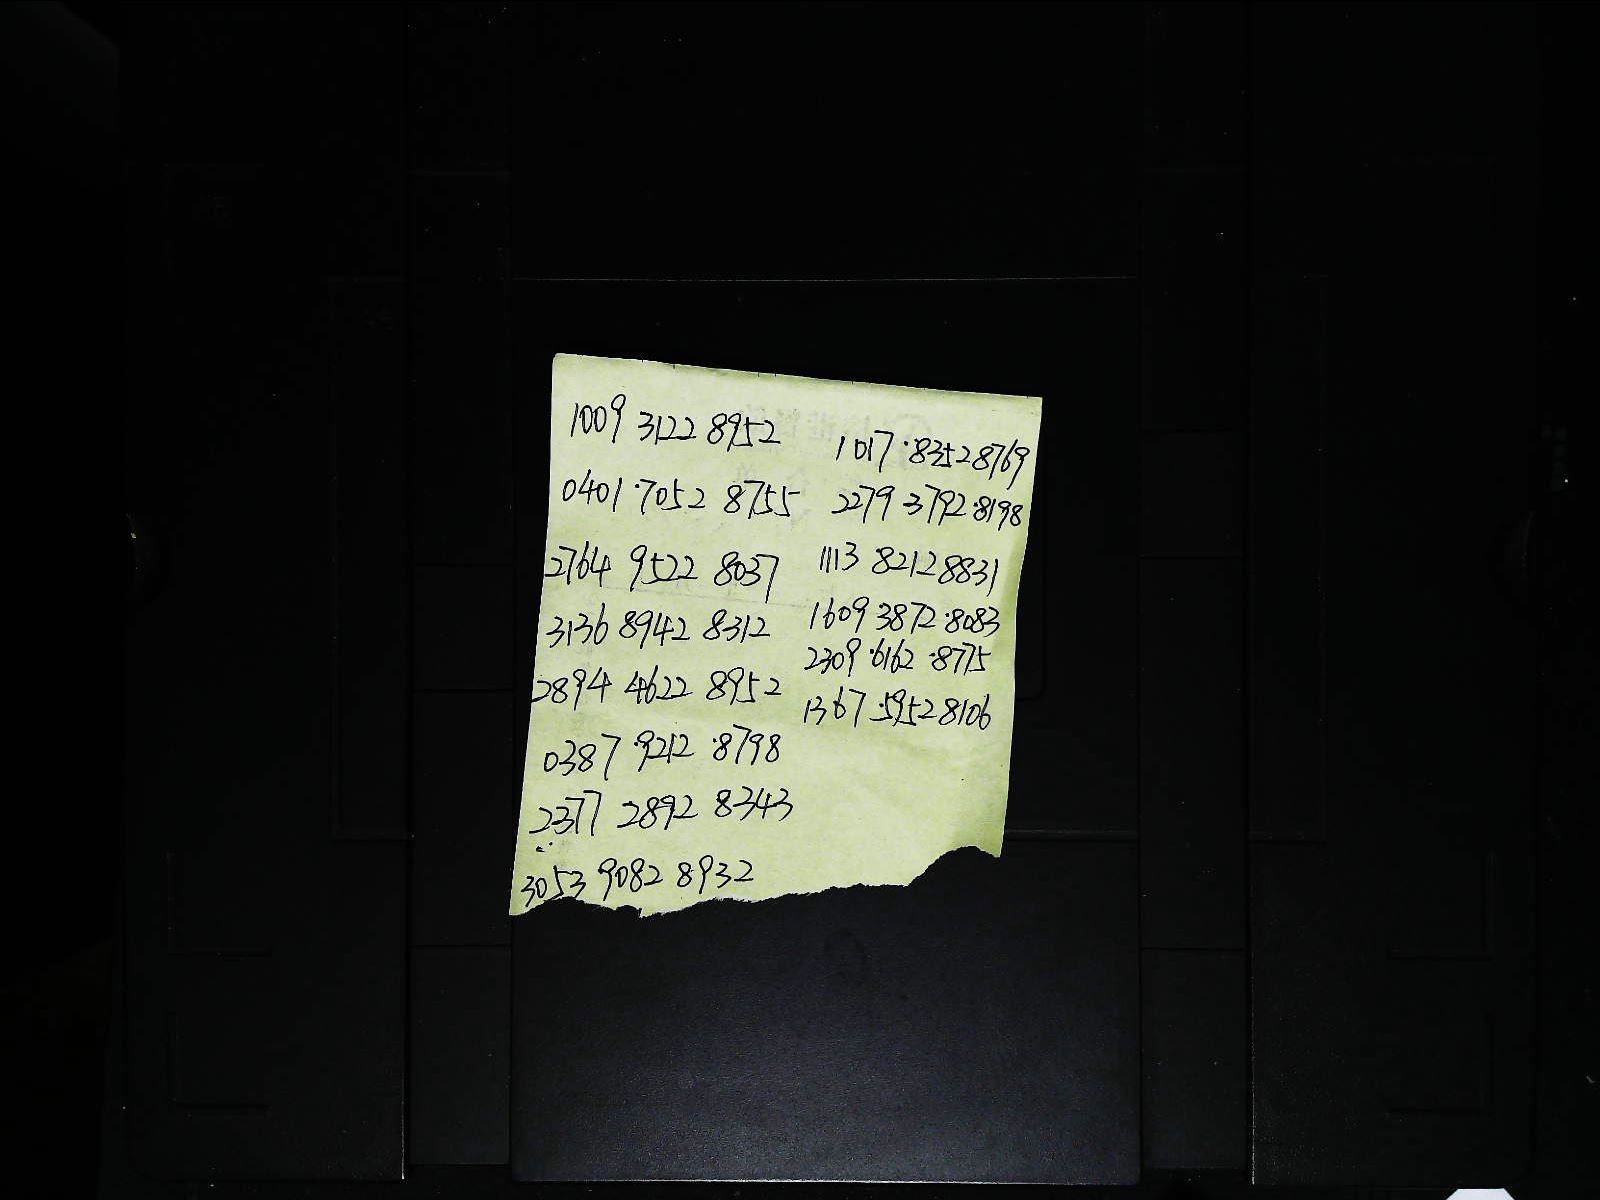 1009 3122 8952
0401·7052 8755
2764 9522 8037
3136 8942 8312
2894 4622 8952
0387·9212·8798
2377 2892 8343
3053 9082 8932
1017·8352 8769
2279 3792·8198
1113·8212 8831
1609 3872·8083
2309·6162·8775
1367·5952 8106